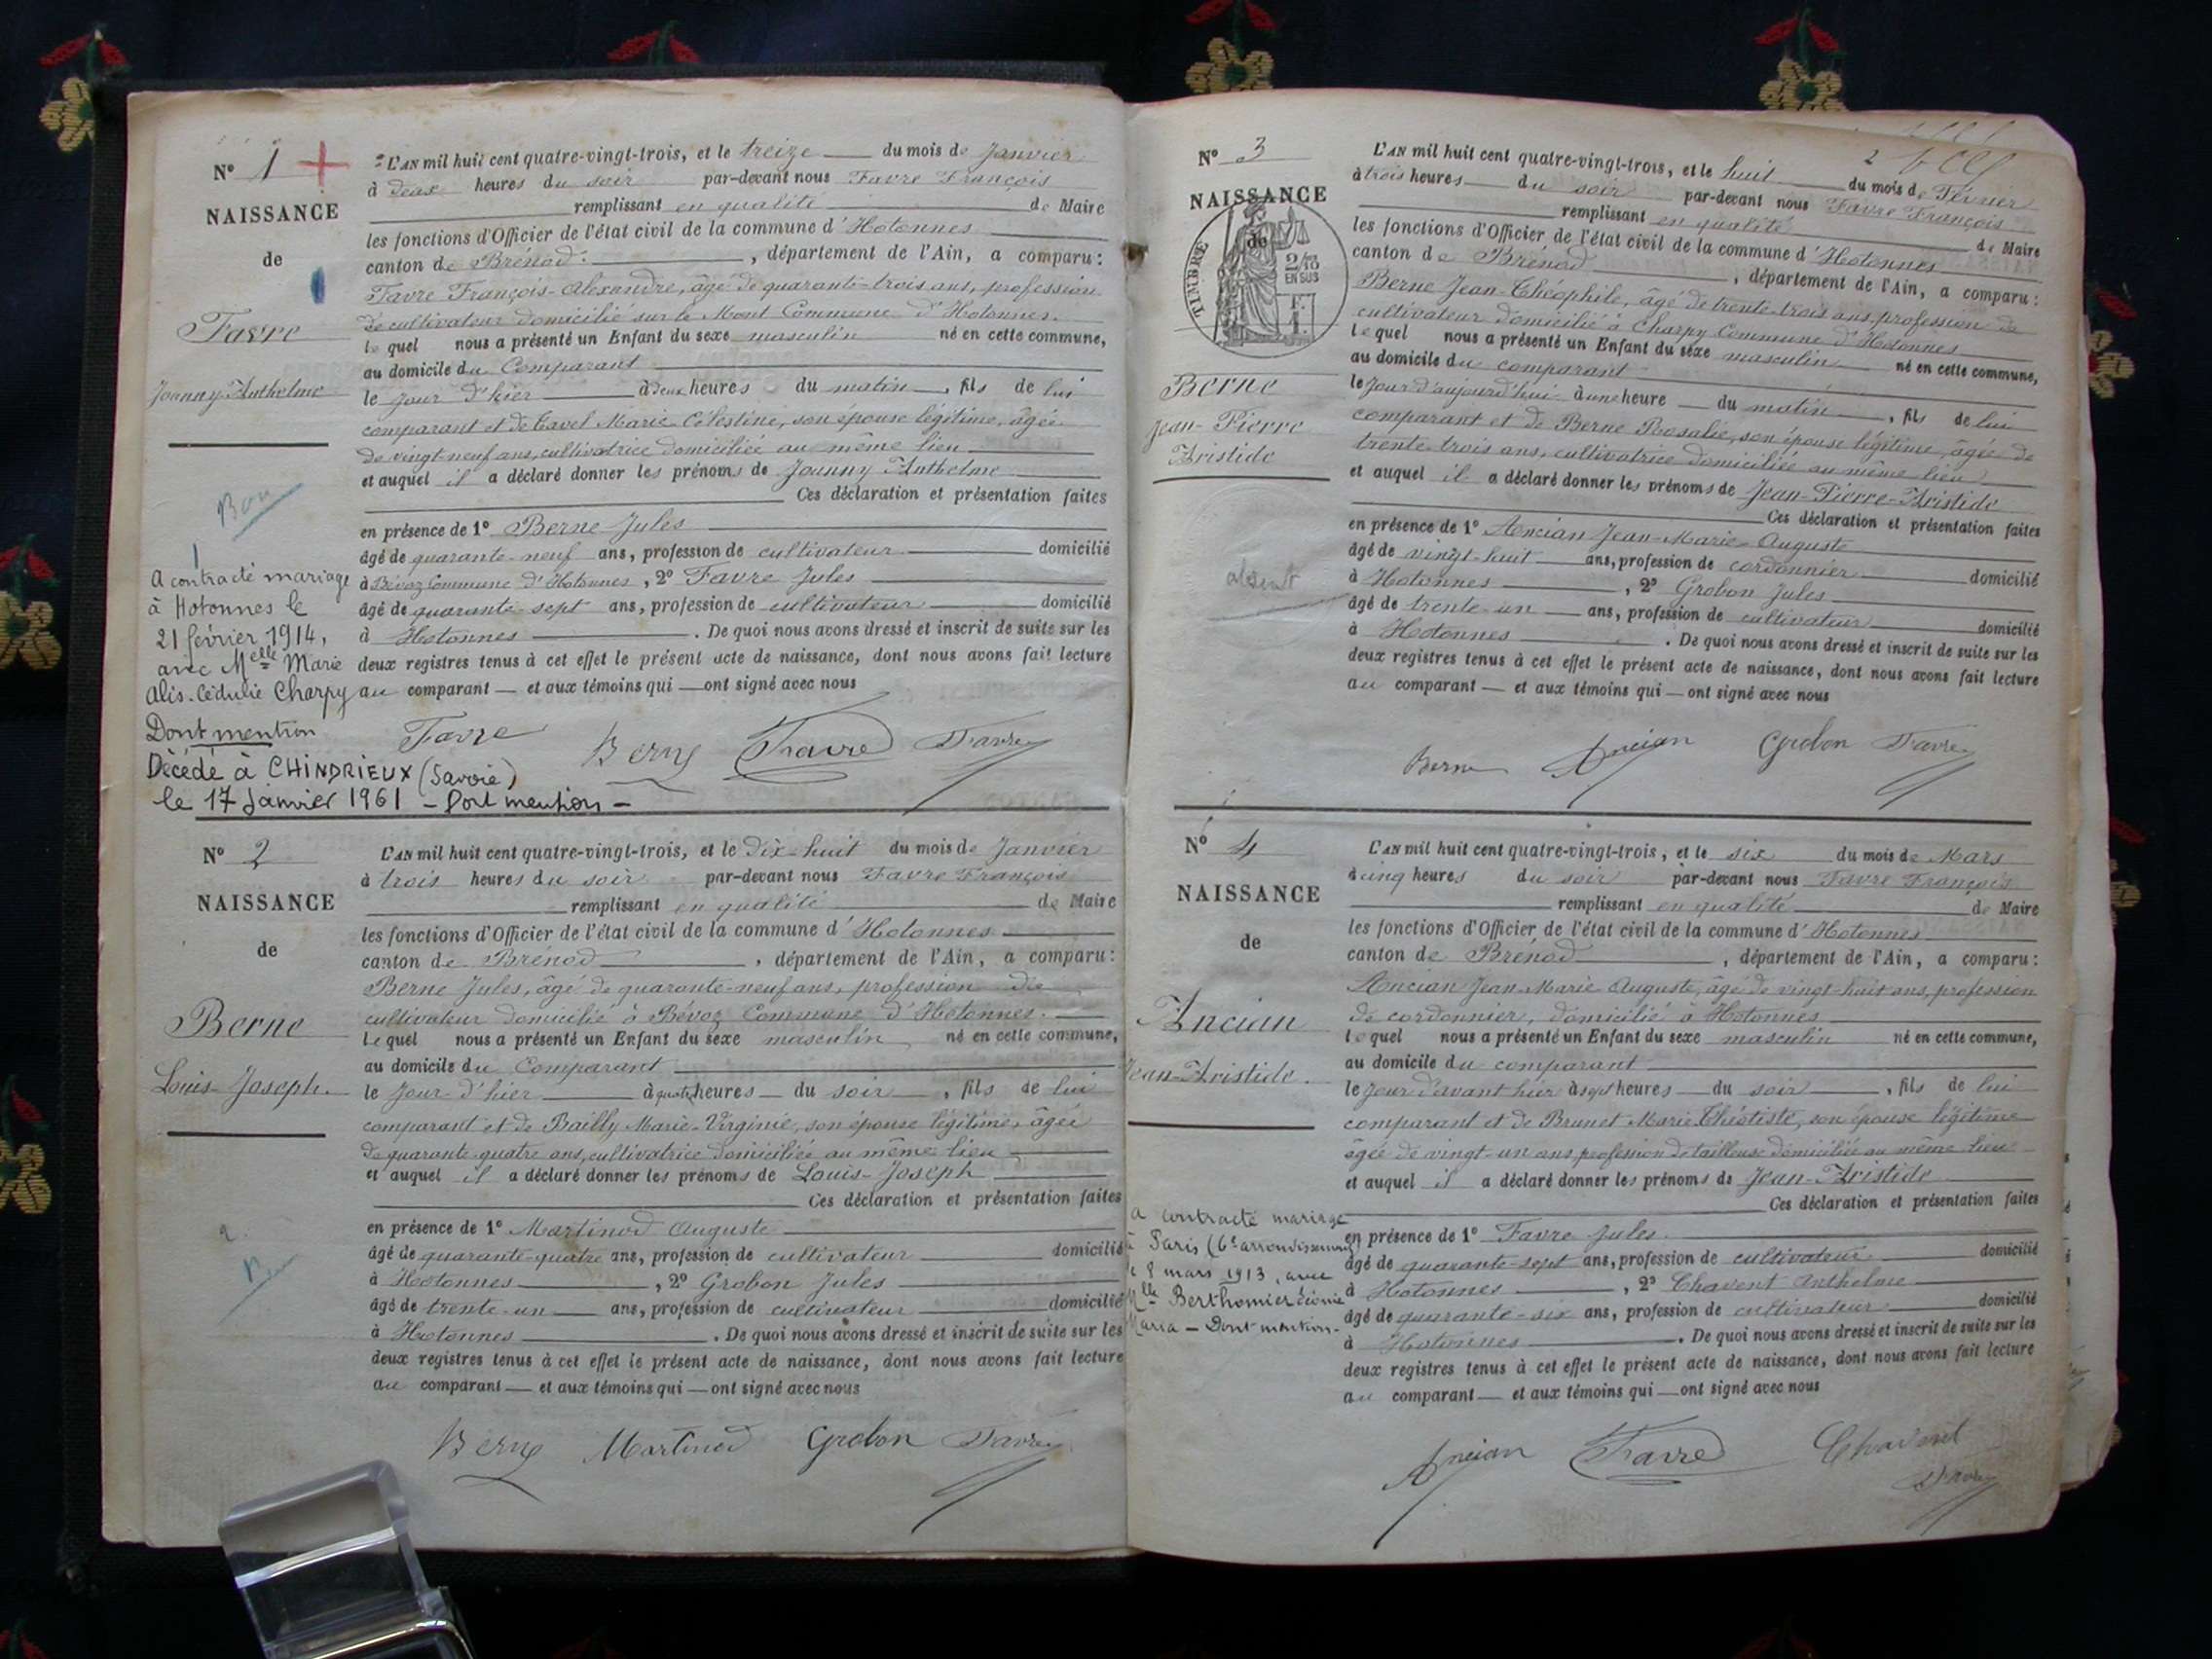 N° 1 +
NAISSANCE
de
Favre
Joanny-Anthelme
Bon
A contracté mariage
à Hotonnes le
21 février 1914,
avec Melle Marie
Alis-Cédulie Charpy
Dont mention
Décédé à CHINDRIEUX (Savoie)
le 17 Janvier 1961 - Dont mention -
L'AN mil huit cent quatre-vingt-trois, et le treize du mois de Janvier
à deux heures du soir par-devant nous Favre François
remplissant en qualité de Maire
les fonctions d'Officier de l'état civil de la commune d'Hotonnes
canton de Brénod, département de l'Ain, a comparu:
Favre François-Alexandre, âgé de quarante-trois ans, profession
de cultivateur domicilié sur le Mont Commune d'Hotonnes.
lequel nous a présenté un Enfant du sexe masculin né en cette commune,
au domicile du Comparant
le jour d'hier à deux heures du matin, fils de lui
comparant et de Tavel Marie Célestine, son épouse légitime, âgée
de vingt-neuf ans, cultivatrice domiciliée au même lieu
et auquel il a déclaré donner les prénoms de Joanny Anthelme
Ces déclaration et présentation faites
en présence de 1° Berne Jules
âgé de quarante-neuf ans, profession de cultivateur domicilié
à Bévoz Commune d'Hotonnes, 2° Favre Jules
âgé de quarante-sept ans, profession de cultivateur domicilié
à Hotonnes. De quoi nous avons dressé et inscrit de suite sur les
deux registres tenus à cet effet le présent acte de naissance, dont nous avons fait lecture
au comparant et aux témoins qui ont signé avec nous
Favre Berne Favre Favre
N° 2
NAISSANCE
de
Berne
Louis-Joseph.
L'AN mil huit cent quatre-vingt-trois, et le dix-huit du mois de Janvier
à trois heures du soir par-devant nous Favre François
remplissant en qualité de Maire
les fonctions d'Officier de l'état civil de la commune d'Hotonnes
canton de Brénod, département de l'Ain, a comparu:
Berne Jules, âgé de quarante-neuf ans, profession de
cultivateur domicilié à Bévoz Commune d'Hotonnes.
lequel nous a présenté un Enfant du sexe masculin né en cette commune,
au domicile du Comparant
le jour d'hier à quatre heures du soir, fils de lui
comparant et de Bailly Marie-Virginie, son épouse légitime, âgée
de quarante-quatre ans, cultivatrice domiciliée au même lieu
et auquel il a déclaré donner les prénoms de Louis-Joseph
Ces déclaration et présentation faites
en présence de 1° Martinod Auguste
âgé de quarante-quatre ans, profession de cultivateur domicilié
à Hotonnes, 2° Grobon Jules
âgé de trente-un ans, profession de cultivateur domicilié
à Hotonnes. De quoi nous avons dressé et inscrit de suite sur les
deux registres tenus à cet effet le présent acte de naissance, dont nous avons fait lecture
au comparant et aux témoins qui ont signé avec nous
Berne Martinod Grobon Favre
N° 3
NAISSANCE
de
TIMBRE
2/10
EN SUS
Berne
Jean-Pierre
Aristide
absent
2
L'AN mil huit cent quatre-vingt-trois, et le huit du mois de Février
à trois heures du soir par-devant nous Favre François
remplissant en qualité de Maire
les fonctions d'Officier de l'état civil de la commune d'Hotonnes
canton de Brénod, département de l'Ain, a comparu:
Berne Jean-Théophile, âgé de trente-trois ans, profession de
cultivateur domicilié à Charpy Commune d'Hotonnes
lequel nous a présenté un Enfant du sexe masculin né en cette commune,
au domicile du comparant
le jour d'aujourd'hui à une heure du matin, fils de lui
comparant et de Berne Rosalie, son épouse légitime, âgée de
trente-trois ans, cultivatrice domiciliée au même lieu
et auquel il a déclaré donner les prénoms de Jean-Pierre-Aristide
Ces déclaration et présentation faites
en présence de 1° Ancian Jean-Marie-Auguste
âgé de vingt-huit ans, profession de cordonnier domicilié
à Hotonnes, 2° Grobon Jules
âgé de trente-un ans, profession de cultivateur domicilié
à Hotonnes. De quoi nous avons dressé et inscrit de suite sur les
deux registres tenus à cet effet le présent acte de naissance, dont nous avons fait lecture
au comparant et aux témoins qui ont signé avec nous
Berne Ancian Grobon Favre
N° 4
NAISSANCE
de
Ancian
Jean-Aristide.
a contracté mariage
à Paris (6e arrondissement)
le 8 mars 1913, avec
Mlle Berthomier Léonie
Maria - Dont mention -
L'AN mil huit cent quatre-vingt-trois, et le six du mois de Mars
à cinq heures du soir par-devant nous Favre François
remplissant en qualité de Maire
les fonctions d'Officier de l'état civil de la commune d'Hotonnes
canton de Brénod, département de l'Ain, a comparu:
Ancian Jean-Marie-Auguste, âgé de vingt-huit ans, profession
de cordonnier, domicilié à Hotonnes
lequel nous a présenté un Enfant du sexe masculin né en cette commune,
au domicile du comparant
le jour d'avant hier à sept heures du soir, fils de lui
comparant et de Brunet Marie Théotiste, son épouse légitime
âgée de vingt-un ans profession de tailleuse domiciliée au même lieu
et auquel il a déclaré donner les prénoms de Jean-Aristide
Ces déclaration et présentation faites
en présence de 1° Favre Jules
âgé de quarante-sept ans, profession de cultivateur domicilié
à Hotonnes, 2° Chavent Anthelme
âgé de quarante-six ans, profession de cultivateur domicilié
à Hotonnes. De quoi nous avons dressé et inscrit de suite sur les
deux registres tenus à cet effet le présent acte de naissance, dont nous avons fait lecture
au comparant et aux témoins qui ont signé avec nous
Ancian Favre Chavent
Favre